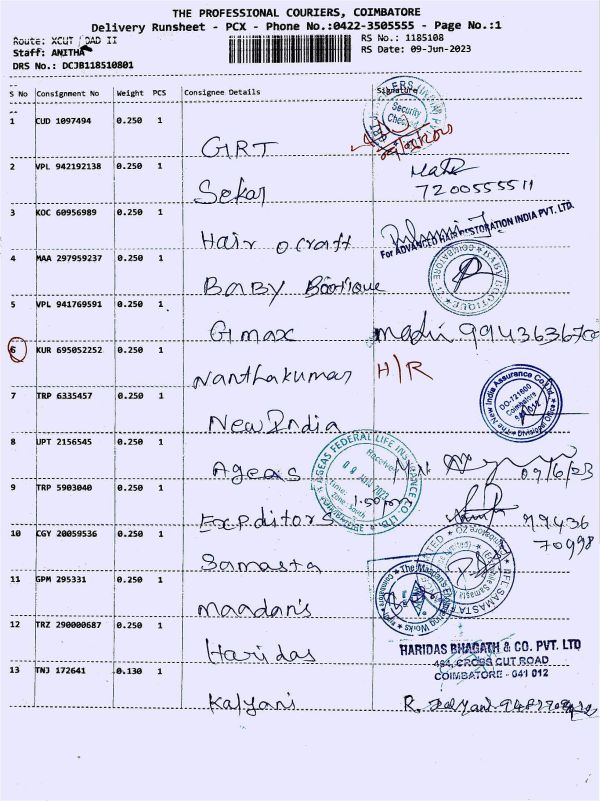 THE PROFESSIONAL COURIERS, COIMBATORE
Delivery Runsheet - PCX - Phone No.:0422-3505555 - Page No.:1
Route: XCUT ROAD II
RS No.: 1185108
Staff: ANITHA
RS Date: 09-Jun-2023
DRS No.: DCJB118510801
S No Consignment No Weight PCS Consignee Details Signature
1 CUD 1097494 0.250 1
GRT
Security
2 VPL 942192138 0.250 1
Sekar
7200555511
3 KOC 60956989 0.250 1
Hair O craft
For ADVANCED HAIR RESTORATION INDIA PVT. LTD.
4 MAA 297959237 0.250 1
BABY Bootique
BABY BOOTIQUE
COIMBATORE
5 VPL 941769591 0.250 1
Gmax
6 KUR 695052252 0.250 1
Nanthakumar H/R
7 TRP 6335457 0.250 1
New India
The New India Assurance Co. Ltd.
DO-721600
Coimbatore
8 UPT 2156545 0.250 1
Ageas 09/6/23
AGEAS FEDERAL LIFE INSURANCE CO. LTD.
Received
Time:
1.50pm
9 TRP 5903040 0.250 1
Expditors 99436
70998
10 CGY 20059536 0.250 1
Samasta
11 GPM 295331 0.250 1
Maadan's
12 TRZ 290000687 0.250 1
Haridas
HARIDAS BHAGATH & CO. PVT. LTD
484, CROSS CUT ROAD
COIMBATORE - 641 012
13 TNJ 172641 0.130 1
Kalyani